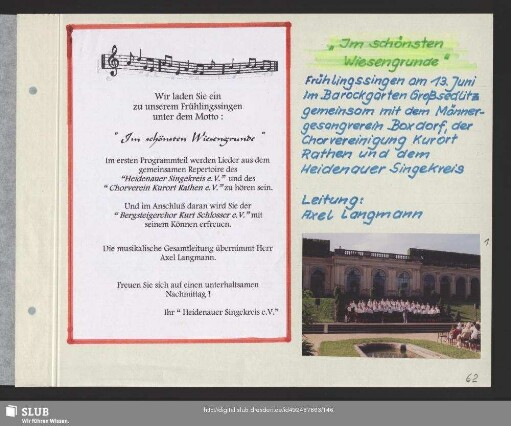 Wir laden Sie ein
zu unserem Frühlingssingen
unter dem Motto :
" Im schönsten Wiesengrunde "
Im ersten Programmteil werden Lieder aus dem
gemeinsamen Repertoire des
"Heidenauer Singekreis e.V." und des
" Chorverein Kurort Rathen e.V." zu hören sein.
Und im Anschluß daran wird Sie der
" Bergsteigerchor Kurt Schlosser e.V." mit
seinem Können erfreuen.
Die musikalische Gesamtleitung übernimmt Herr
Axel Langmann.
Freuen Sie sich auf einen unterhaltsamen
Nachmittag !
Ihr " Heidenauer Singekreis e.V."
„Im schönsten
Wiesengrunde“
Frühlingssingen am 13. Juni
im Barockgarten Großsedlitz
gemeinsam mit dem Männer-
gesangverein Boxdorf, der
Chorvereinigung Kurort
Rathen und dem
Heidenauer Singekreis
Leitung:
Axel Langmann
1
62
SLUB
Wir führen Wissen.